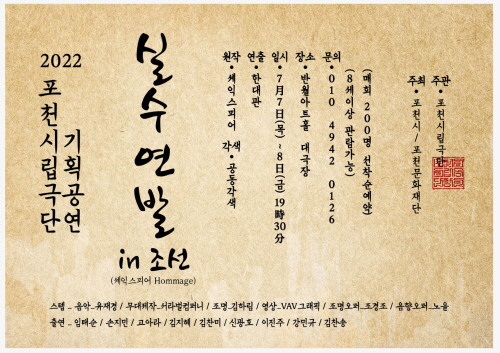 2022
포천시립극단
기획공연
실수연발
in 조선
(셰익스피어 Hommage)
원작 • 셰익스피어 각색 • 공동각색
연출 • 한대관
일시 • 7월 7일(목) ~ 8일(금) 19時 30分
장소 • 반월아트홀 대극장
문의 • 010 4942 0126
(8세이상 관람가능)
(매회 200명 선착순예약)
주최 • 포천시/포천문화재단
주관 • 포천시립극단
스텝 _ 음악_유재경 / 무대제작_서라벌컴퍼니 / 조명_김하림 / 영상_VAV그래픽 / 조명오퍼_조경조 / 음향오퍼_노을
출연 _ 임태순 / 손지민 / 고아라 / 김지혜 / 김찬미 / 신광호 / 이진주 / 강민규 / 김찬송